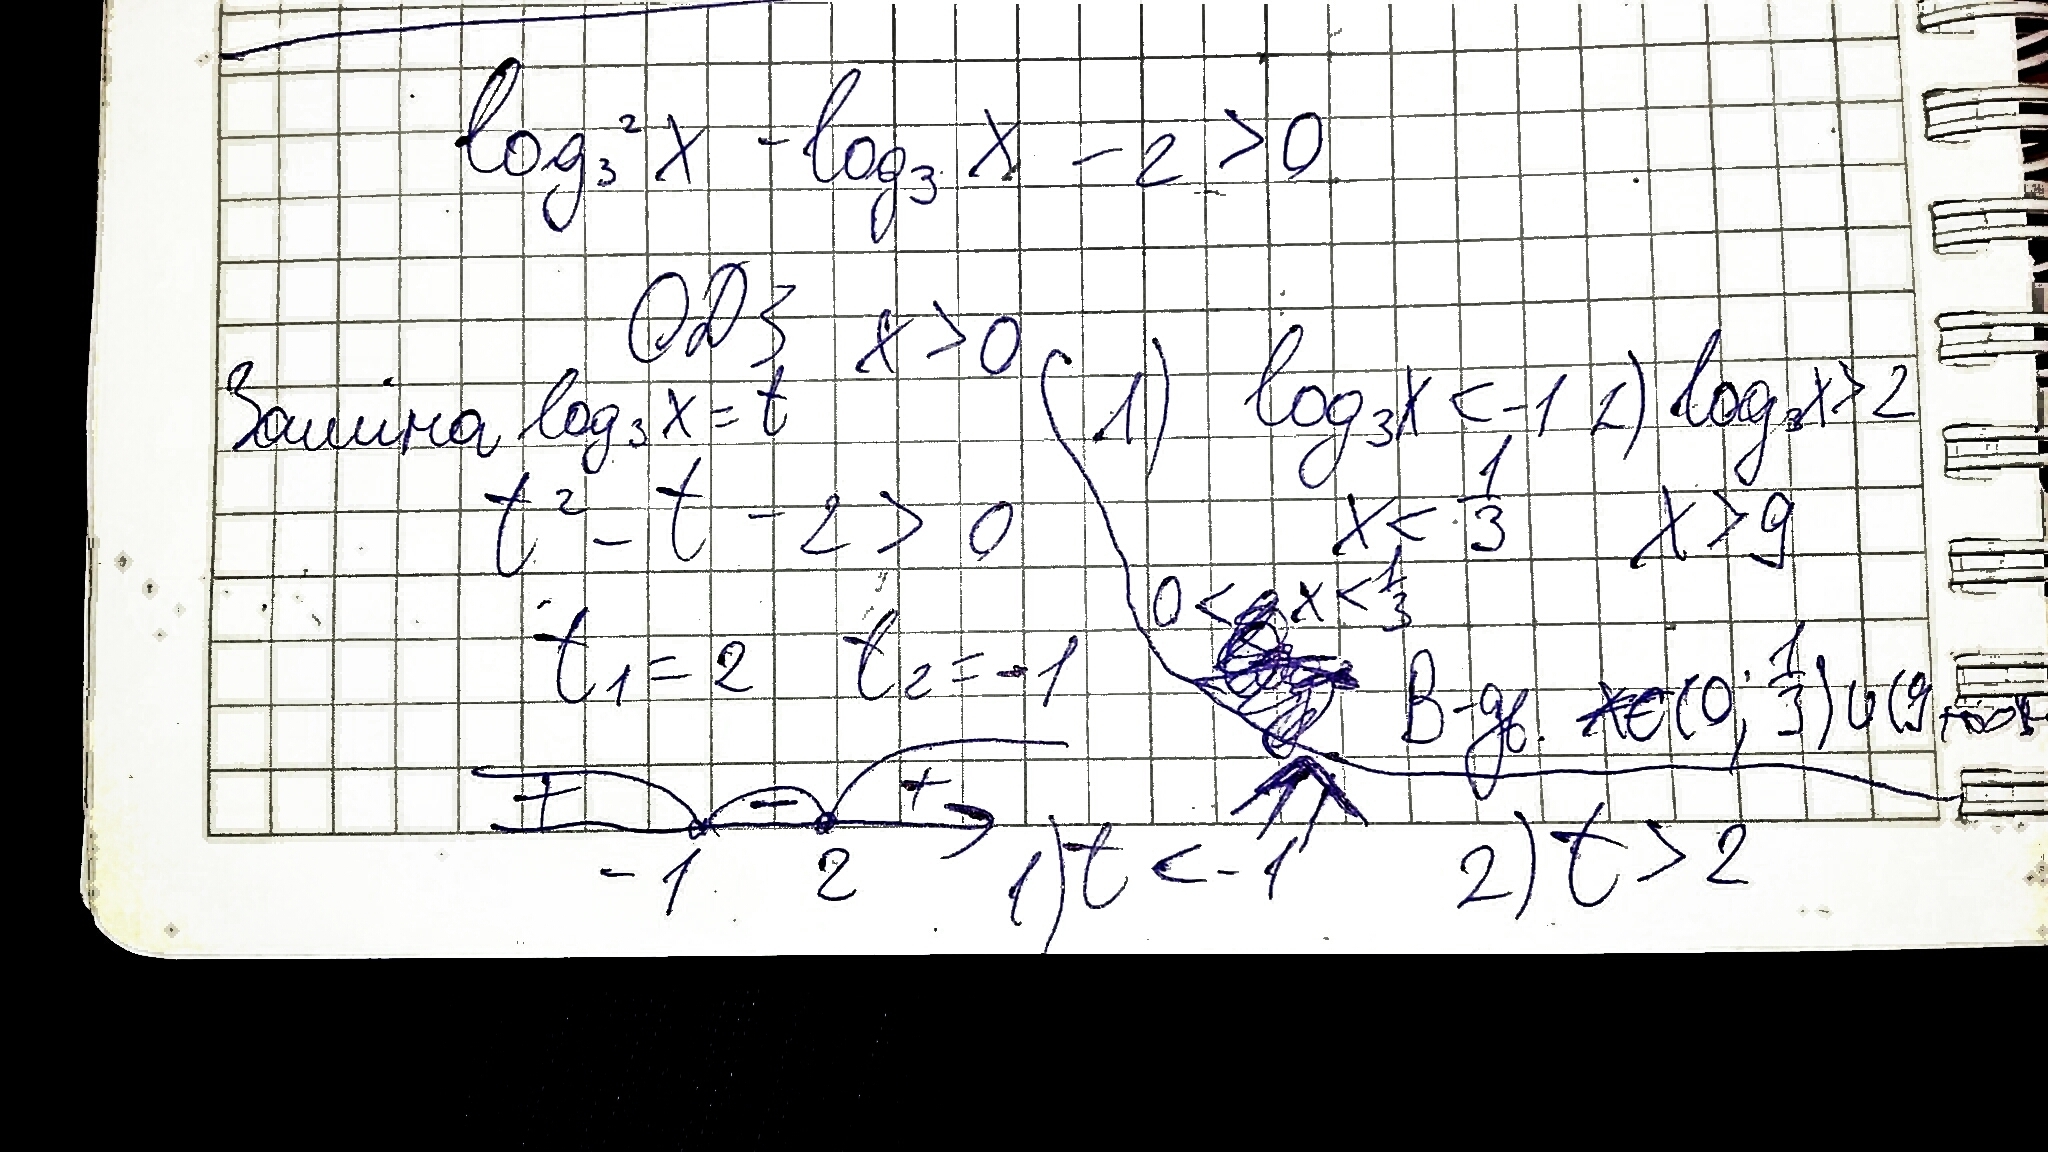 log₃²x - log₃x - 2 > 0
ОДЗ x > 0
Заміна log₃x = t
t² - t - 2 > 0
t₁ = 2 t₂ = -1
+ - +
-1 2
1) t < -1 2) t > 2
1) log₃x < -1 2) log₃x > 2
x < 1/3 x > 9
0 < x < 1/3
В-дь. x∈(0; 1/3)∪(9; +∞)